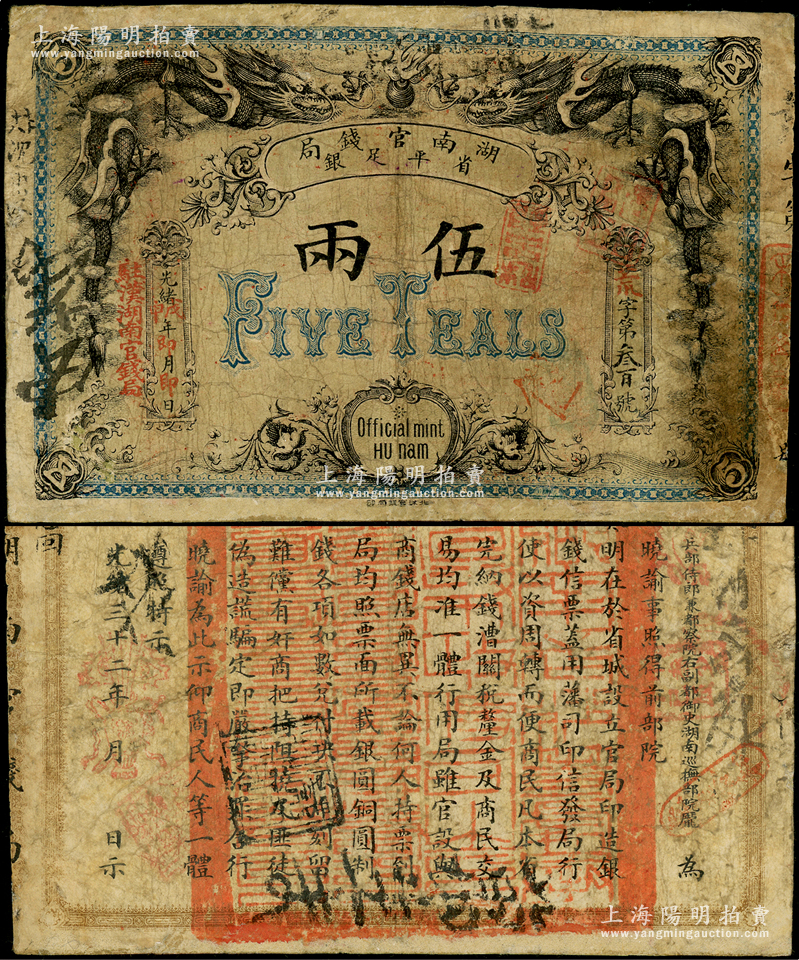 上海陽明拍賣
www.yangmingauction.com
湖南官錢局
省平足銀
伍兩
FIVE TEALS
荒字第叁百號
光緒年月日
駐漢湖南官錢局
Official mint
HU nam
上海陽明拍賣
www.yangmingauction.com
兵部侍郎兼都察院右副都御史湖南巡撫部院龐為
曉諭事照得前部院
明在於省城設立官局印造銀
錢信票蓋用藩司印信發局行
使以資周轉而便商民凡本省
完納錢漕關稅釐金及商民交
易均准一體行用局雖官設與
商錢店無異不論何人持票到
局均照票面所載銀圓銅圓制
錢各項如數兌付決不刻留
難儻有奸商把持阻撓及匪徒
偽造謊騙定即嚴拏治罪合行
曉諭為此示仰商民人等一體
遵照特示
光緒三十二年月日示
上海陽明拍賣
www.yangmingauction.com